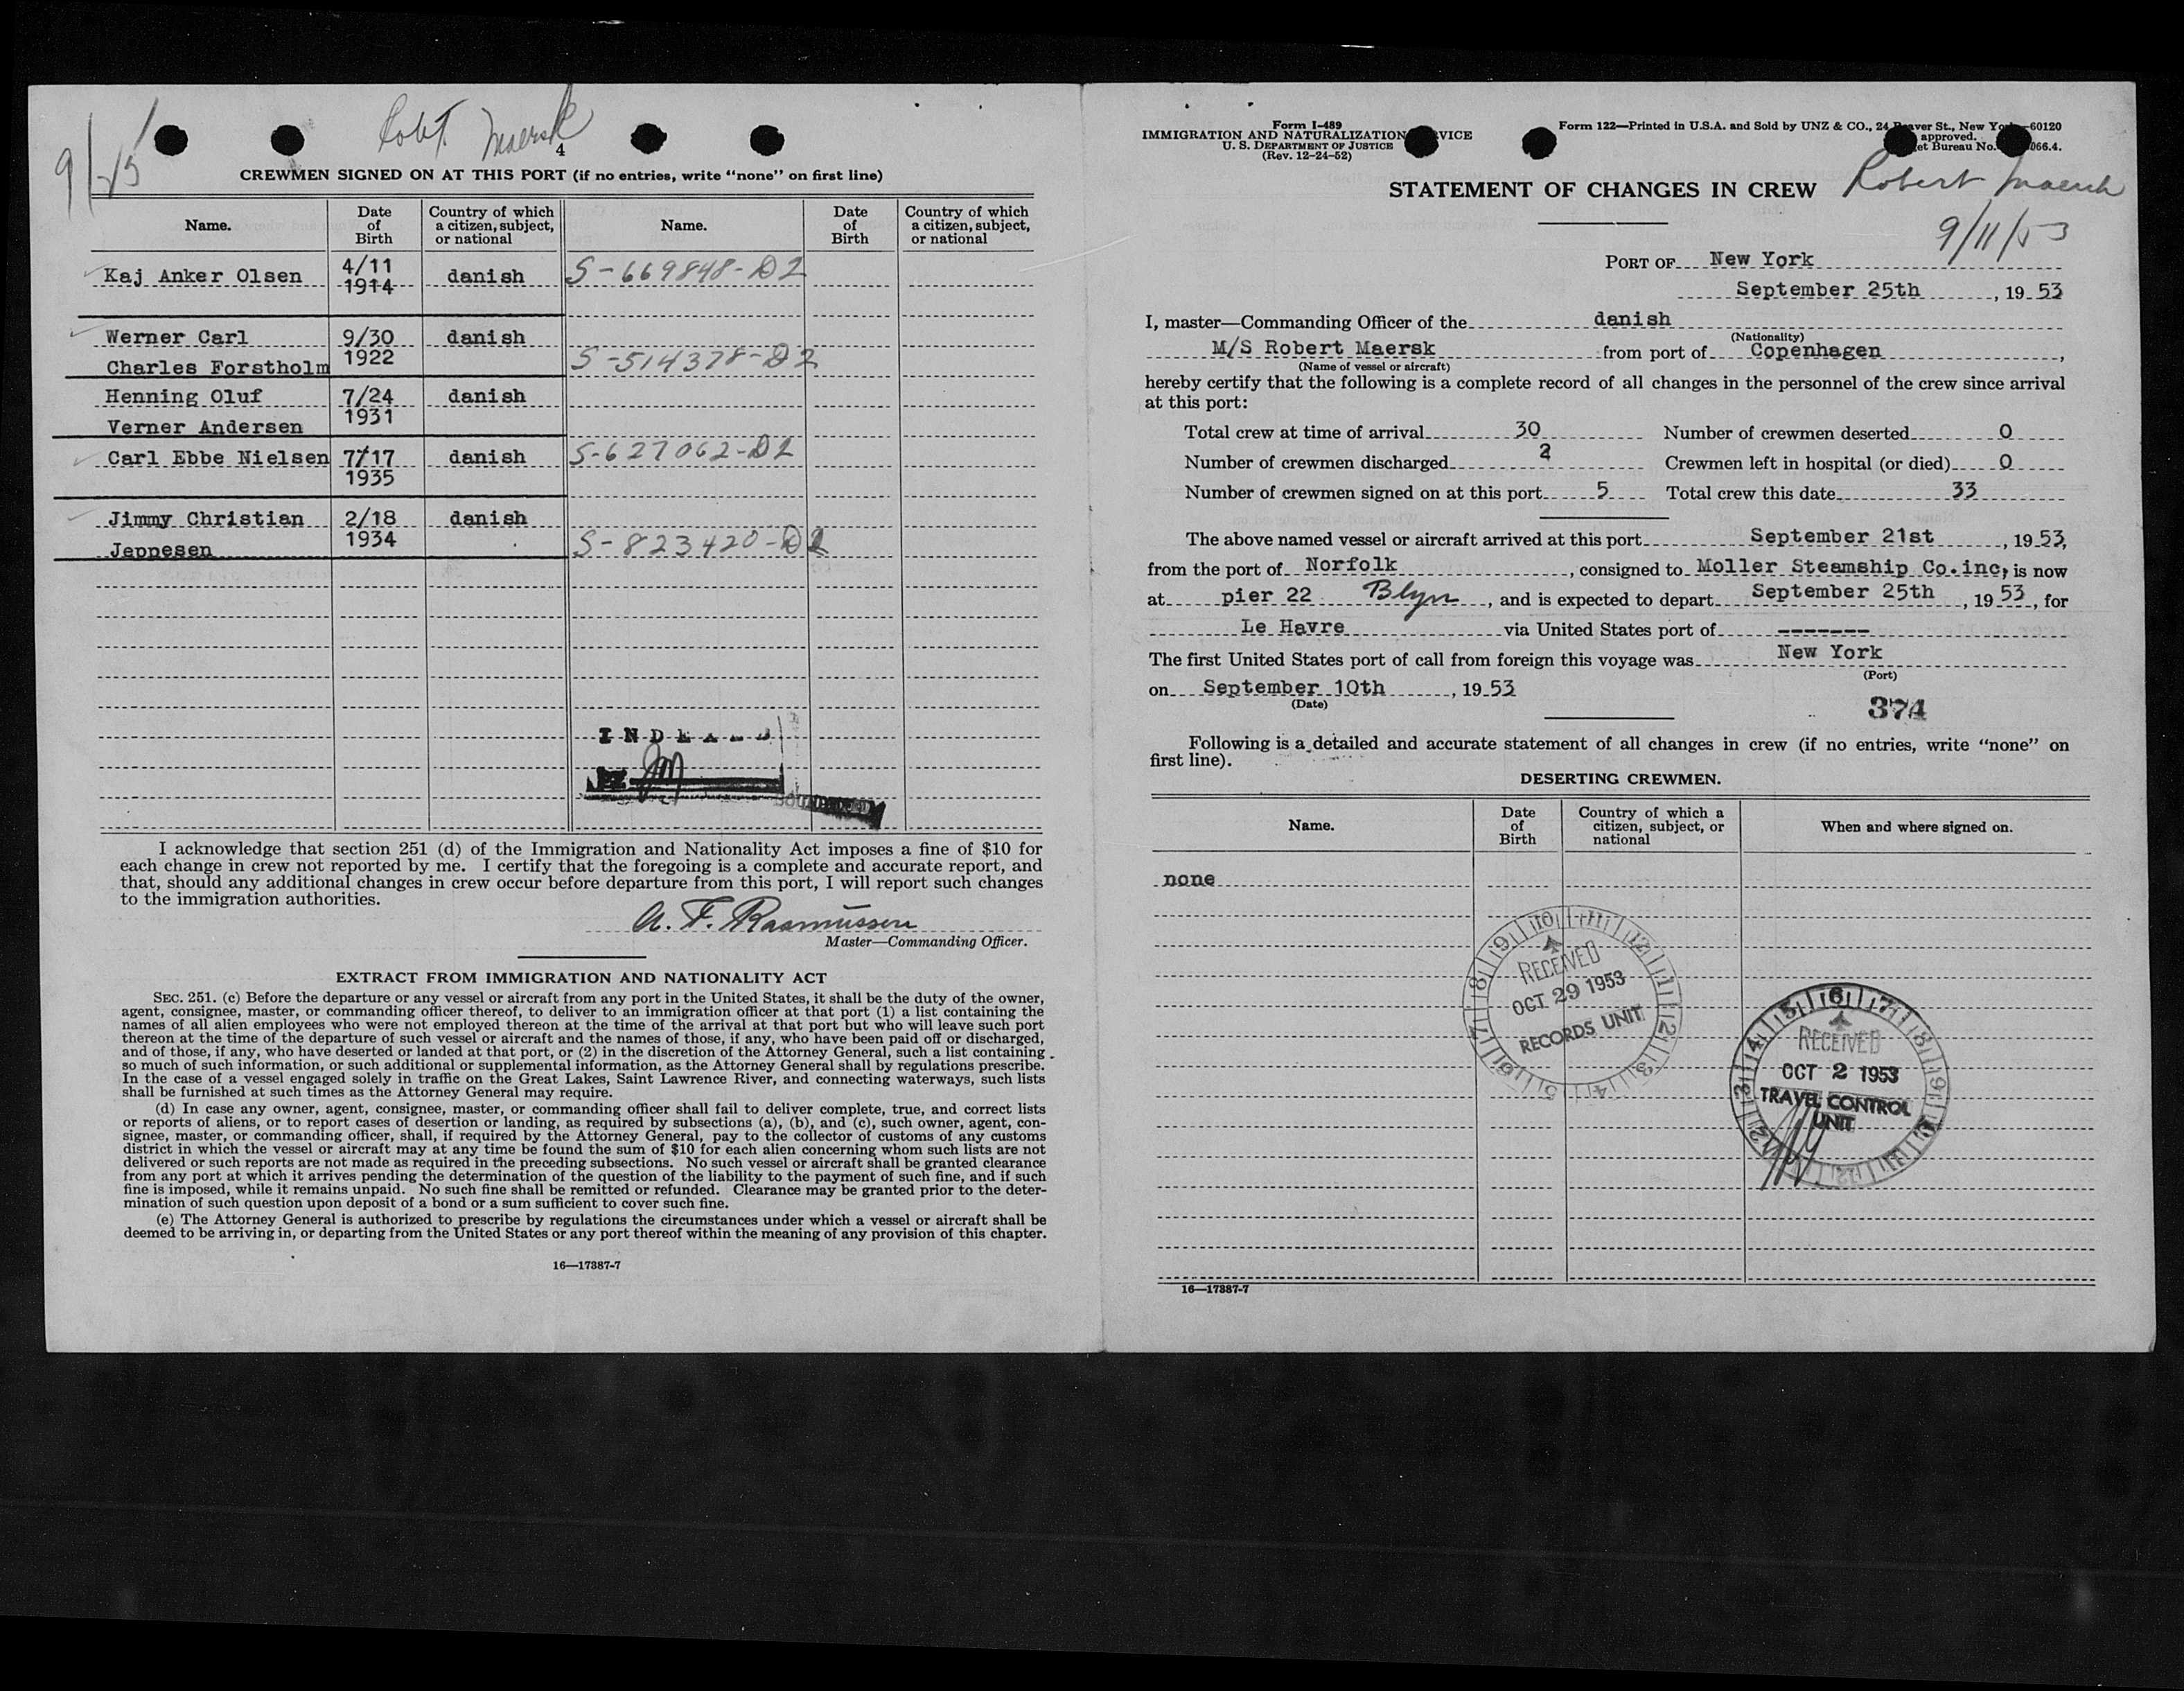 9/25
Robt. Maersk
4
CREWMEN SIGNED ON AT THIS PORT (if no entries, write “none” on first line)
Name. Date of Birth Country of which a citizen, subject, or national Name. Date of Birth Country of which a citizen, subject, or national
Kaj Anker Olsen 4/11 1914 danish S-669848-D2
Werner Carl 9/30 danish
Charles Forstholm 1922 S-514378-D2
Henning Oluf 7/24 danish
Verner Andersen 1931
Carl Ebbe Nielsen 7/17 1935 danish S-627062-D2
Jimmy Christian 2/18 danish
Jeppesen 1934 S-823420-D2
INDEXED
I acknowledge that section 251 (d) of the Immigration and Nationality Act imposes a fine of $10 for
each change in crew not reported by me. I certify that the foregoing is a complete and accurate report, and
that, should any additional changes in crew occur before departure from this port, I will report such changes
to the immigration authorities.
A. F. Rasmussen
Master—Commanding Officer.
EXTRACT FROM IMMIGRATION AND NATIONALITY ACT
SEC. 251. (c) Before the departure or any vessel or aircraft from any port in the United States, it shall be the duty of the owner,
agent, consignee, master, or commanding officer thereof, to deliver to an immigration officer at that port (1) a list containing the
names of all alien employees who were not employed thereon at the time of the arrival at that port but who will leave such port
thereon at the time of the departure of such vessel or aircraft and the names of those, if any, who have been paid off or discharged,
and of those, if any, who have deserted or landed at that port, or (2) in the discretion of the Attorney General, such a list containing
so much of such information, or such additional or supplemental information, as the Attorney General shall by regulations prescribe.
In the case of a vessel engaged solely in traffic on the Great Lakes, Saint Lawrence River, and connecting waterways, such lists
shall be furnished at such times as the Attorney General may require.
(d) In case any owner, agent, consignee, master, or commanding officer shall fail to deliver complete, true, and correct lists
or reports of aliens, or to report cases of desertion or landing, as required by subsections (a), (b), and (c), such owner, agent, con-
signee, master, or commanding officer, shall, if required by the Attorney General, pay to the collector of customs of any customs
district in which the vessel or aircraft may at any time be found the sum of $10 for each alien concerning whom such lists are not
delivered or such reports are not made as required in the preceding subsections. No such vessel or aircraft shall be granted clearance
from any port at which it arrives pending the determination of the question of the liability to the payment of such fine, and if such
fine is imposed, while it remains unpaid. No such fine shall be remitted or refunded. Clearance may be granted prior to the deter-
mination of such question upon deposit of a bond or a sum sufficient to cover such fine.
(e) The Attorney General is authorized to prescribe by regulations the circumstances under which a vessel or aircraft shall be
deemed to be arriving in, or departing from the United States or any port thereof within the meaning of any provision of this chapter.
16—17387-7
Form I-489
IMMIGRATION AND NATURALIZATION VICE
U. S. DEPARTMENT OF JUSTICE
(Rev. 12-24-52)
Form 122—Printed in U.S.A. and Sold by UNZ & CO., 24 aver St., New Yo 60120
approved.
et Bureau No. 066.4.
STATEMENT OF CHANGES IN CREW
Robert Maersk
9/11/53
PORT OF New York
September 25th, 19 53
I, master—Commanding Officer of the danish
(Nationality)
M/S Robert Maersk from port of Copenhagen,
(Name of vessel or aircraft)
hereby certify that the following is a complete record of all changes in the personnel of the crew since arrival
at this port:
Total crew at time of arrival 30 Number of crewmen deserted 0
Number of crewmen discharged 2 Crewmen left in hospital (or died) 0
Number of crewmen signed on at this port 5 Total crew this date 33
The above named vessel or aircraft arrived at this port September 21st, 19 53,
from the port of Norfolk, consigned to Moller Steamship Co.inc, is now
at pier 22 Blyn, and is expected to depart September 25th, 19 53, for
Le Havre via United States port of -------
The first United States port of call from foreign this voyage was New York
(Port)
on September 10th, 19 53
(Date)
374
Following is a detailed and accurate statement of all changes in crew (if no entries, write “none” on
first line).
DESERTING CREWMEN.
Name. Date of Birth Country of which a citizen, subject, or national When and where signed on.
none
RECEIVED
OCT 29 1953
RECORDS UNIT
RECEIVED
OCT 2 1953
TRAVEL CONTROL
UNIT
16—17387-7